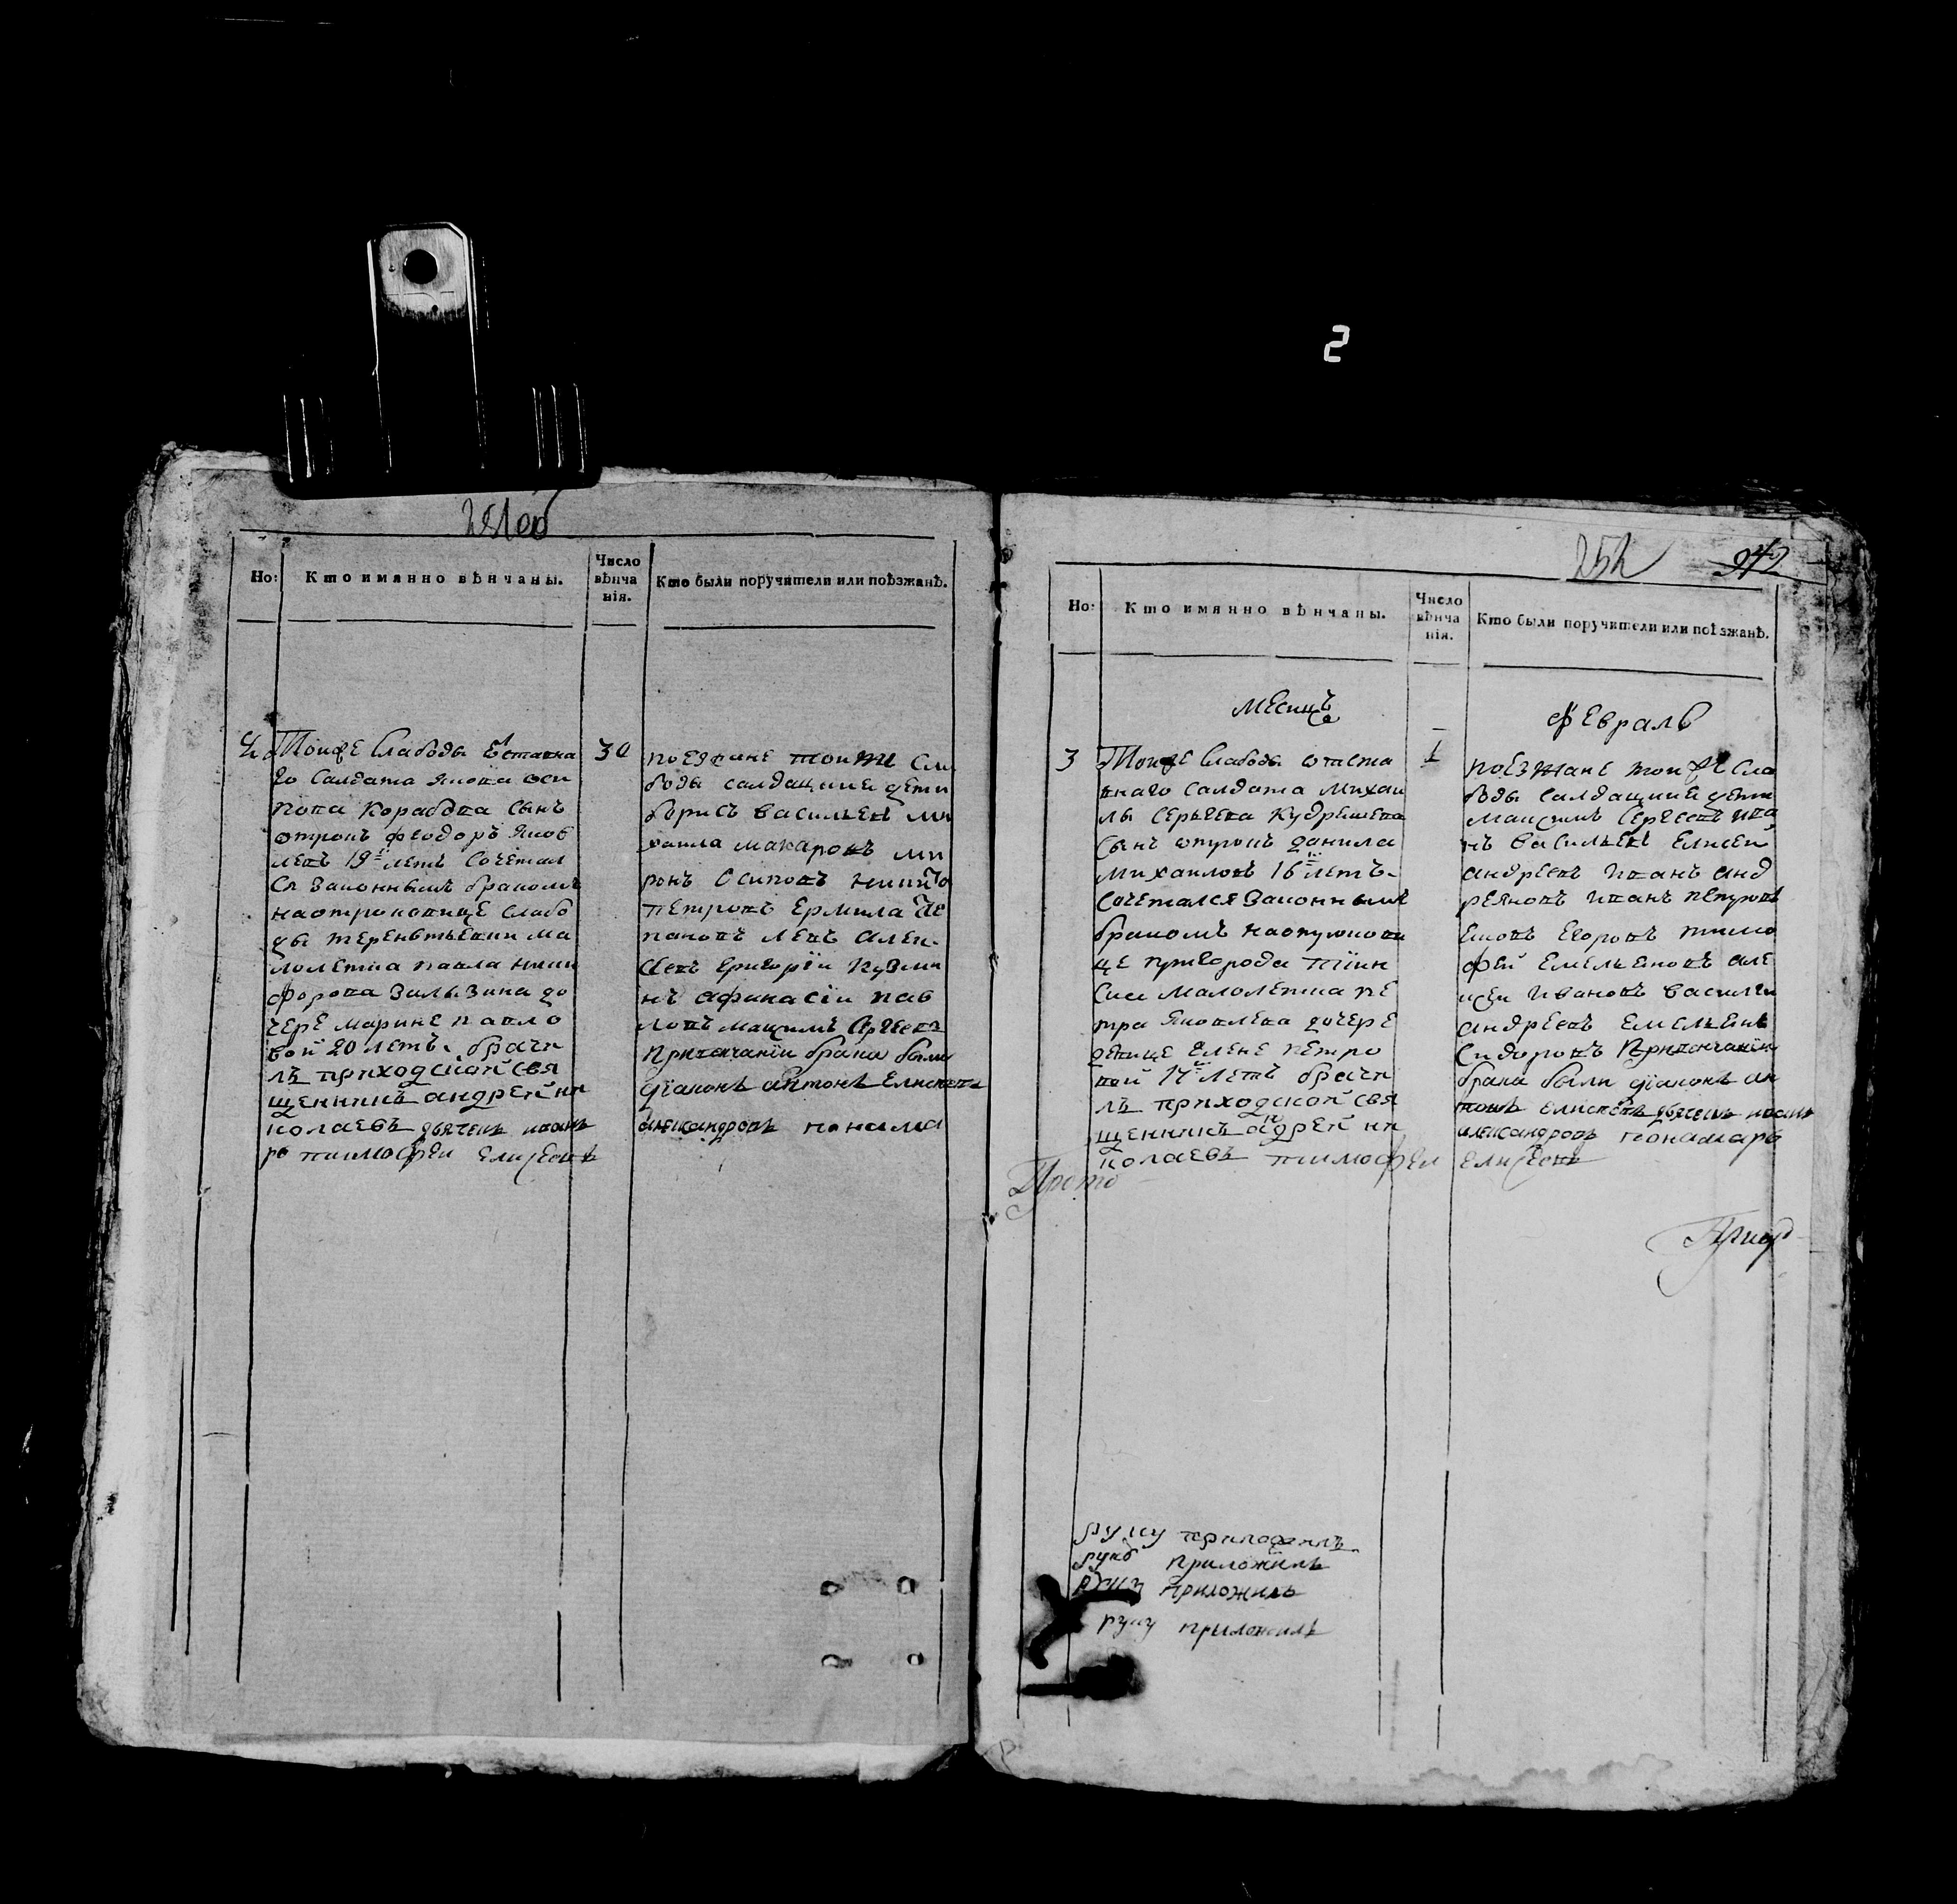 2
251 об
Но:
Кто имянно вѣнчаны.
Число вѣнчанія.
Кто были поручители или поѣзжанѣ.
Тойже слабоды
30
го салдата Якова оси
пова Корабова сынъ
отрокъ Феодоръ Яков
левъ 19 летъ сочетал
ся законнымъ бракомъ
наотроковице слабо
ды терентьевки ма
лолетка павла ники
форова до
чере марине павло
вой 20 летъ. брачи
лъ приходской свя
щенникъ андрей ни
колаевъ дьячекъ иванъ
рь тимофеи елисеевъ
поезжане тойже сла
боды салдацкие дети
борисъ васильевъ ми
хаила макаровъ ми
ронъ осиповъ никита
петровъ ермила сте
пановъ левъ алек
сеевъ григорїи кузми
нъ афанасїи пав
ловъ максимъ сергеевъ
привенчанїи брака были
дїаконъ антонъ елисеевъ
александровъ понама
252
Но:
Кто имянно вѣнчаны.
Число вѣнчанія.
Кто были поручители или поѣзжанѣ.
месяцъ
февраль
3
Тойже слабоды отста
внаго салдата михаи
лы сергеева Кудряшева
сынъ отрокъ данила
михаиловъ 16 летъ
сочетался законнымъ
бракомъ наотрокови
це пригорода тїин
ска малолетка пе
тра яковлева дочере
девице елене петро
вой 17 летъ брачи
лъ приходской свя
щенникъ андрей ни
колаевъ тимофеи елисеевъ
1
поезжане тойже сла
боды салдацкие дети
максимъ сергеевъ ива
нъ васильевъ елисеи
андреевъ иванъ анд
реяновъ иванъ петровъ
егоровъ тимо
фей емельяновъ але
ксеи ивановъ василеи
андреевъ емельянъ
сидоровъ привенчанїи
брака были дїаконъ ан
тонъ елисеевъ дьячекъ иванъ
александровъ понамарь
Прото
руку приложилъ
руку приложилъ
руку приложилъ
руку приложилъ